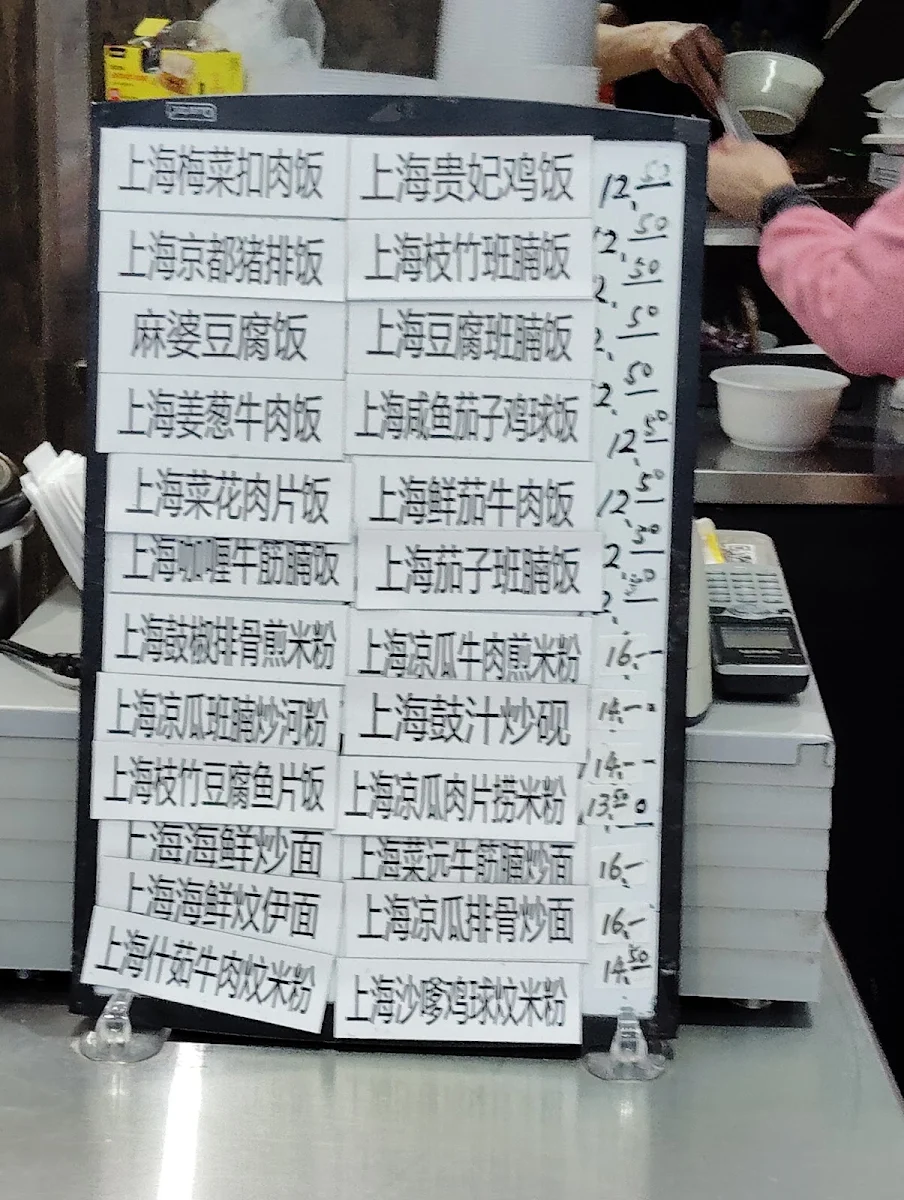 上海梅菜扣肉饭 上海贵妃鸡饭 12.50
上海京都猪排饭 上海枝竹班腩饭 12.50
2.50
麻婆豆腐饭 上海豆腐班腩饭 2.50
上海姜葱牛肉饭 上海咸鱼茄子鸡球饭 2.50
12.50
上海菜花肉片饭 上海鲜茄牛肉饭 12.50
上海咖喱牛筋腩饭 上海茄子班腩饭 2.50
2.50
上海鼓椒排骨煎米粉 上海凉瓜牛肉煎米粉 16.-
上海凉瓜班腩炒河粉 上海鼓汁炒砚 14.--
上海枝竹豆腐鱼片饭 上海凉瓜肉片捞米粉 14.--
13.50
上海海鲜炒面 上海菜远牛筋腩炒面 16.-
上海海鲜炆伊面 上海凉瓜排骨炒面 16.-
上海什茹牛肉炆米粉 上海沙嗲鸡球炆米粉 14.50